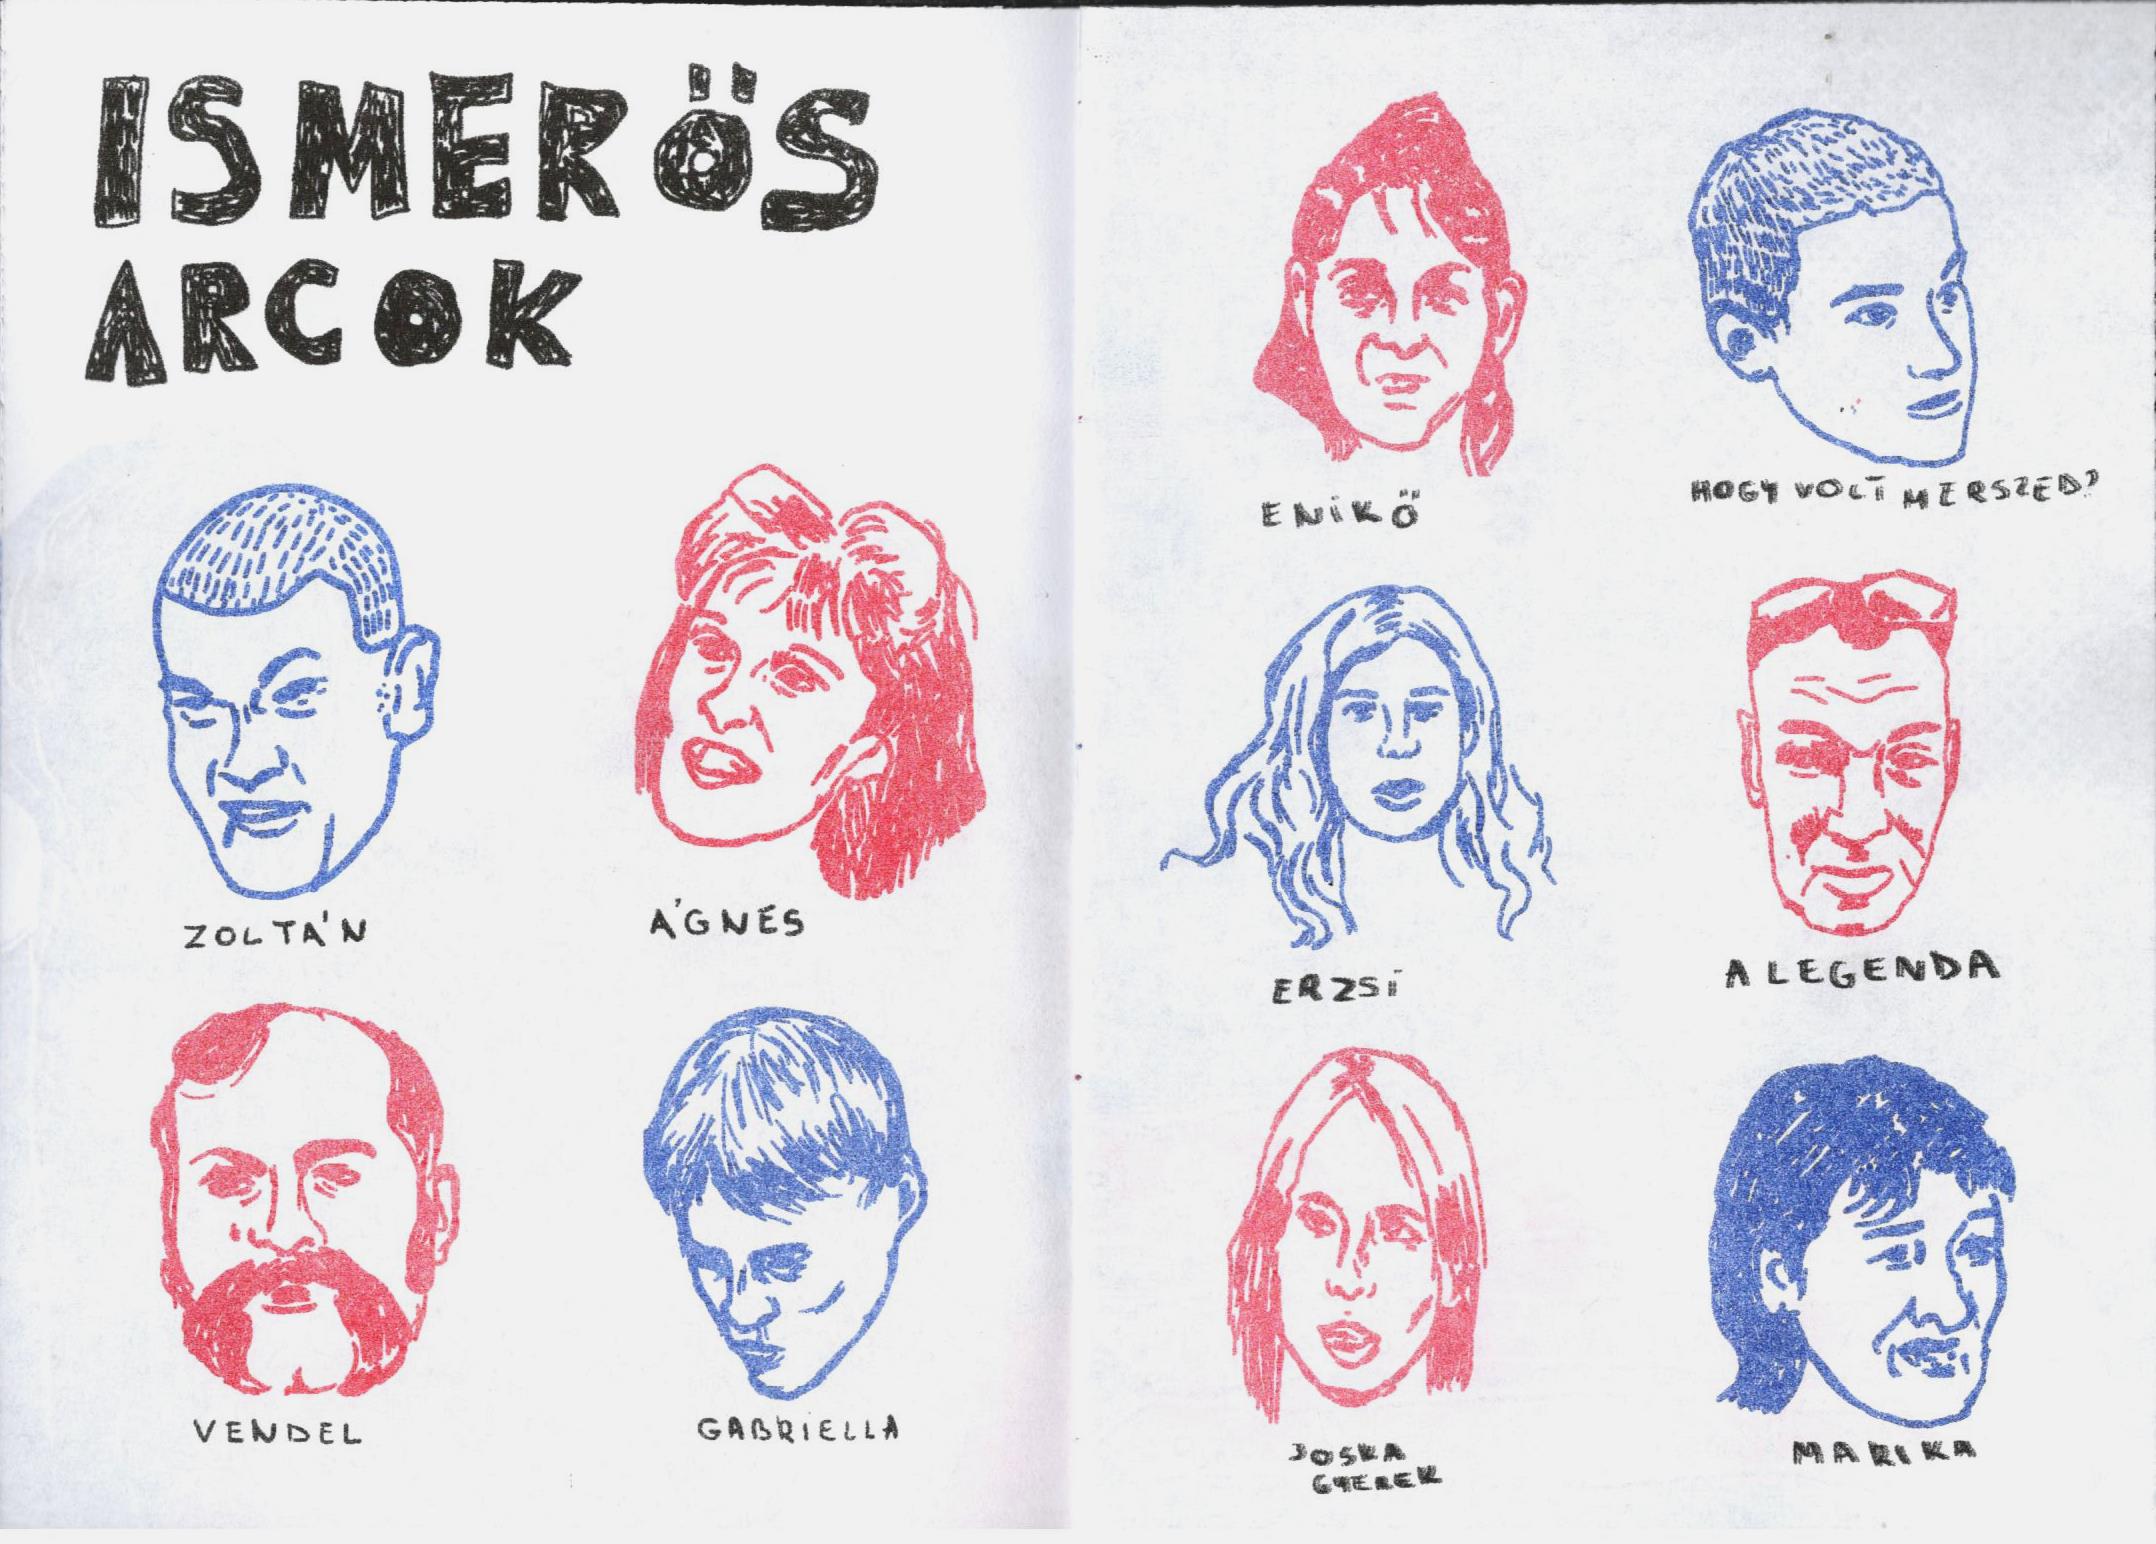 ISMERŐS
ARCOK
ZOLTÁN
ÁGNES
VENDEL
GABRIELLA
ENIKŐ
HOGY VOLT MERSZED?
ERZSI
A LEGENDA
JOSKA
GYEREK
MARIKA